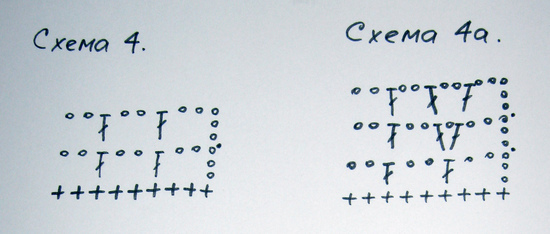 Схема 4.
Схема 4а.